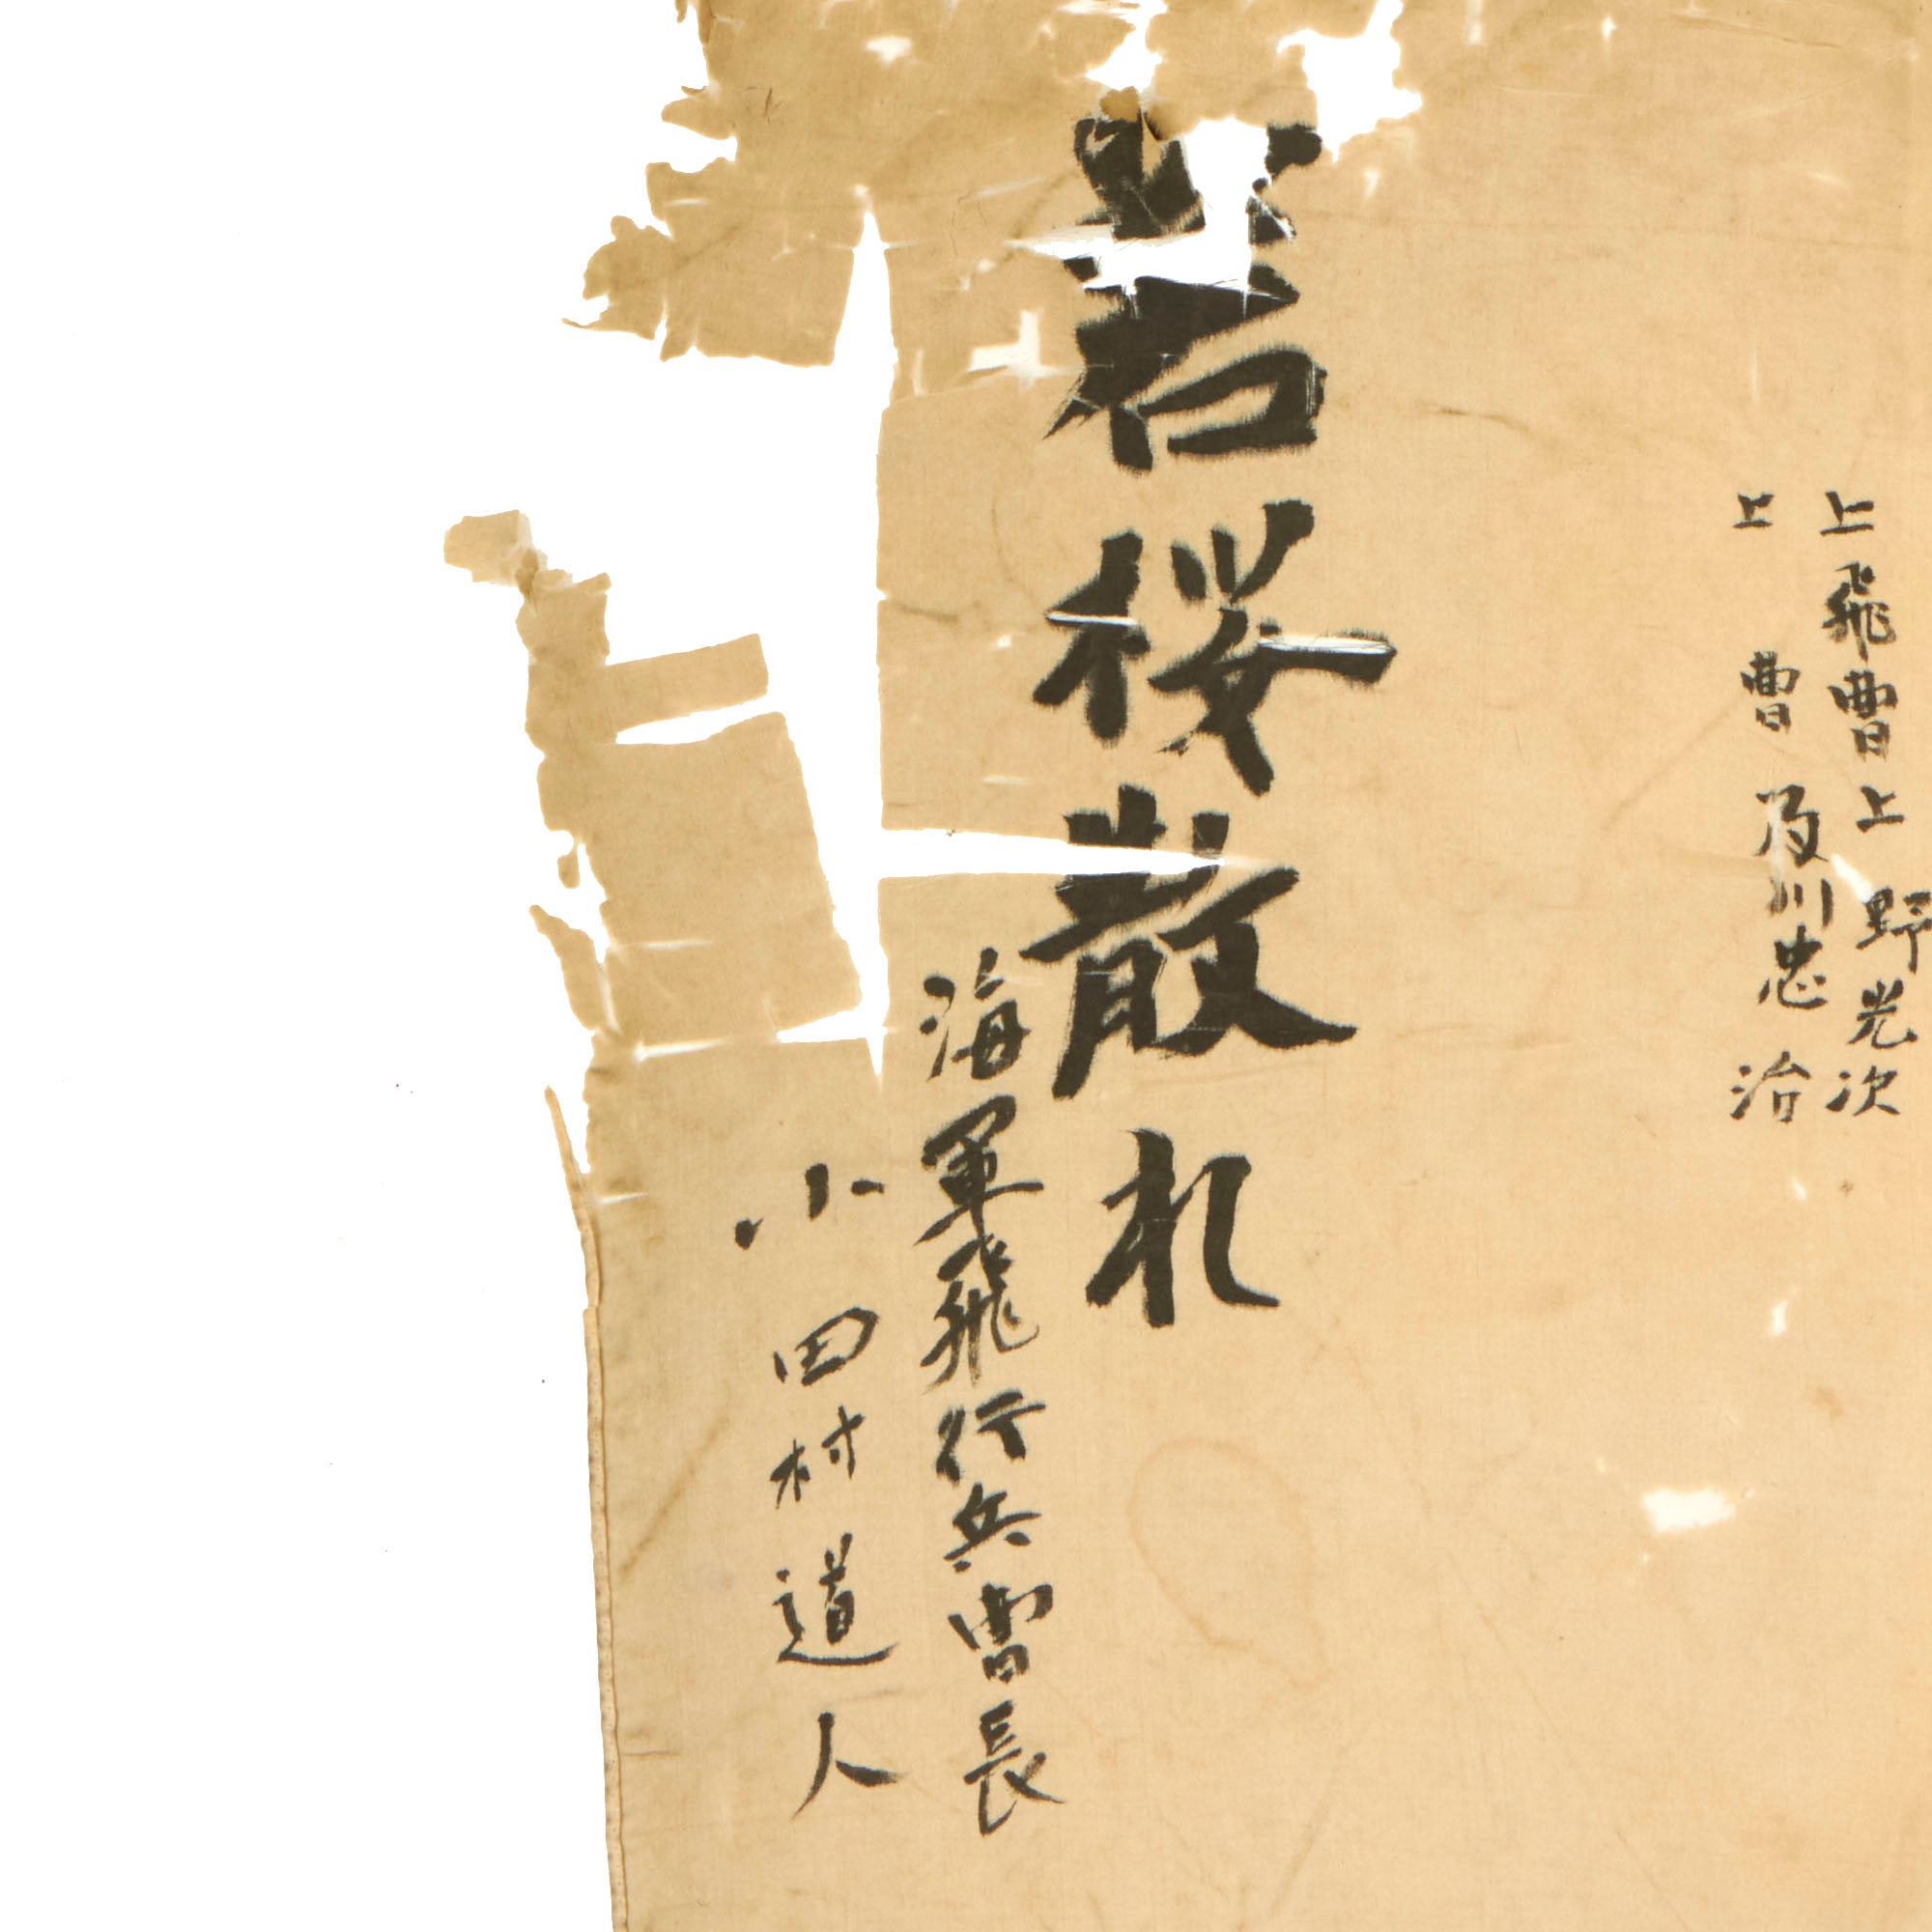 上飛曹上野光次
上曹及川忠治
若桜散れ
海軍飛行兵曹長
小田村道人